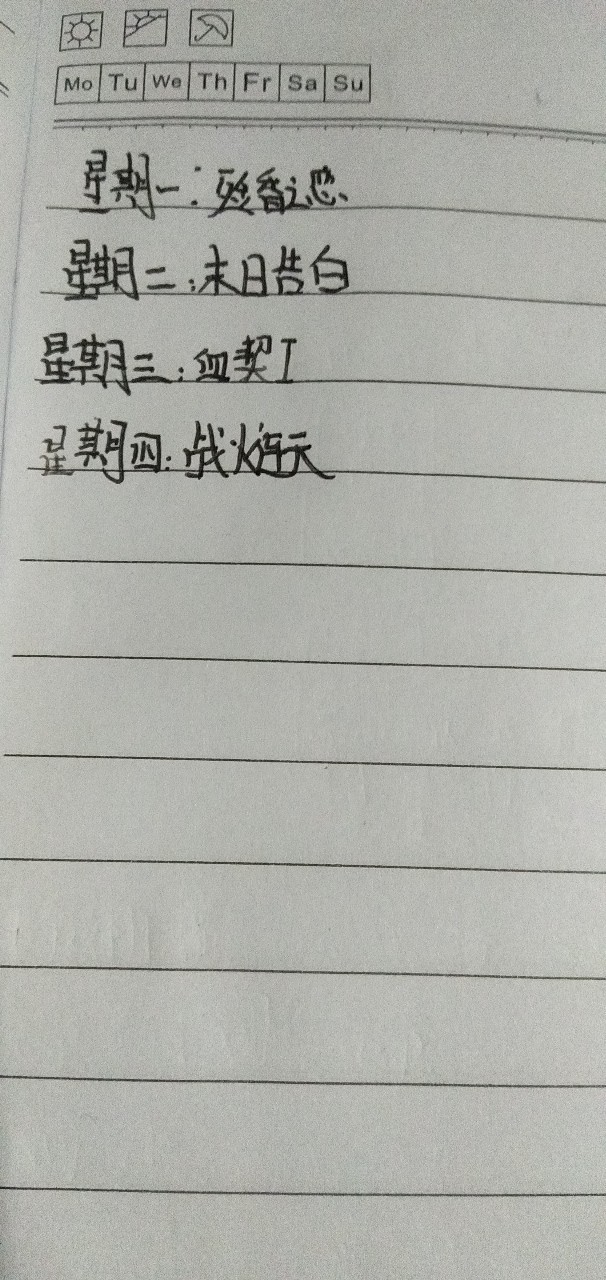 Mo Tu We Th Fr Sa Su
星期一:
星期二:末日告白
星期三:血契I
星期四:战火连天